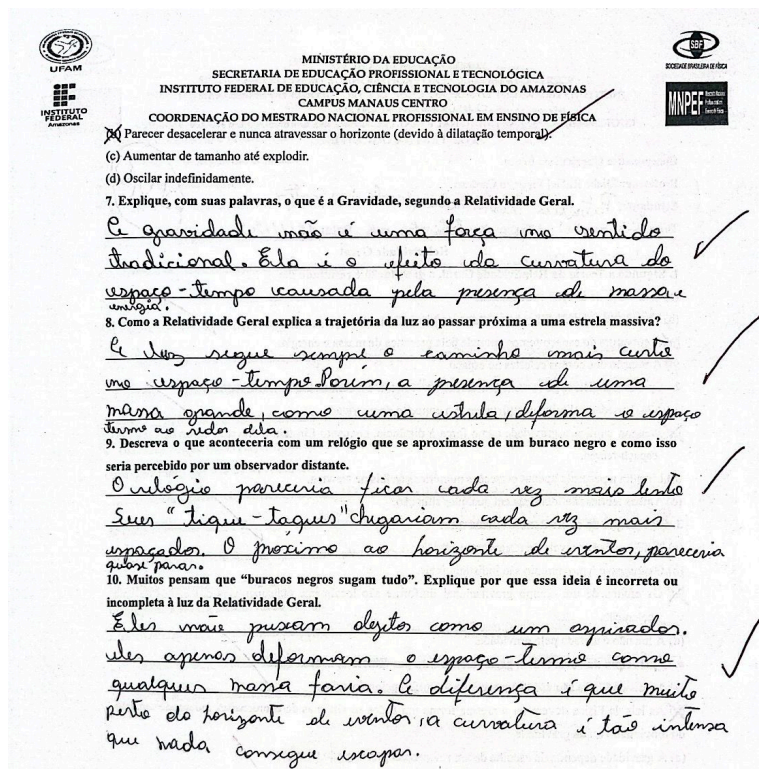 UFAM
INSTITUTO
FEDERAL
Amazonas
SBF
SOCIEDADE BRASILEIRA DE FÍSICA
MNPEF
MINISTÉRIO DA EDUCAÇÃO
SECRETARIA DE EDUCAÇÃO PROFISSIONAL E TECNOLÓGICA
INSTITUTO FEDERAL DE EDUCAÇÃO, CIÊNCIA E TECNOLOGIA DO AMAZONAS
CAMPUS MANAUS CENTRO
COORDENAÇÃO DO MESTRADO NACIONAL PROFISSIONAL EM ENSINO DE FÍSICA
(b) Parecer desacelerar e nunca atravessar o horizonte (devido à dilatação temporal).
(c) Aumentar de tamanho até explodir.
(d) Oscilar indefinidamente.
7. Explique, com suas palavras, o que é a Gravidade, segundo a Relatividade Geral.
A gravidade não é uma força no sentido
tradicional. Ela é o efeito da curvatura do
espaço-tempo causada pela presença de massa e
energia.
8. Como a Relatividade Geral explica a trajetória da luz ao passar próxima a uma estrela massiva?
A luz segue sempre o caminho mais curto
no espaço-tempo. Porém, a presença de uma
massa grande, como uma estrela, deforma o espaço
termo ao redor dela.
9. Descreva o que aconteceria com um relógio que se aproximasse de um buraco negro e como isso
seria percebido por um observador distante.
O relógio pareceria ficar cada vez mais lento
Seus "tique-taques" chegariam cada vez mais
espaçados. O próximo ao horizonte de eventos, pareceria
quase parar.
10. Muitos pensam que "buracos negros sugam tudo". Explique por que essa ideia é incorreta ou
incompleta à luz da Relatividade Geral.
Eles não puxam objetos como um aspirador.
eles apenas deformam o espaço-termo como
qualquer massa faria. A diferença é que muito
perto do horizonte de eventos, a curvatura é tão intensa
que nada consegue escapar.